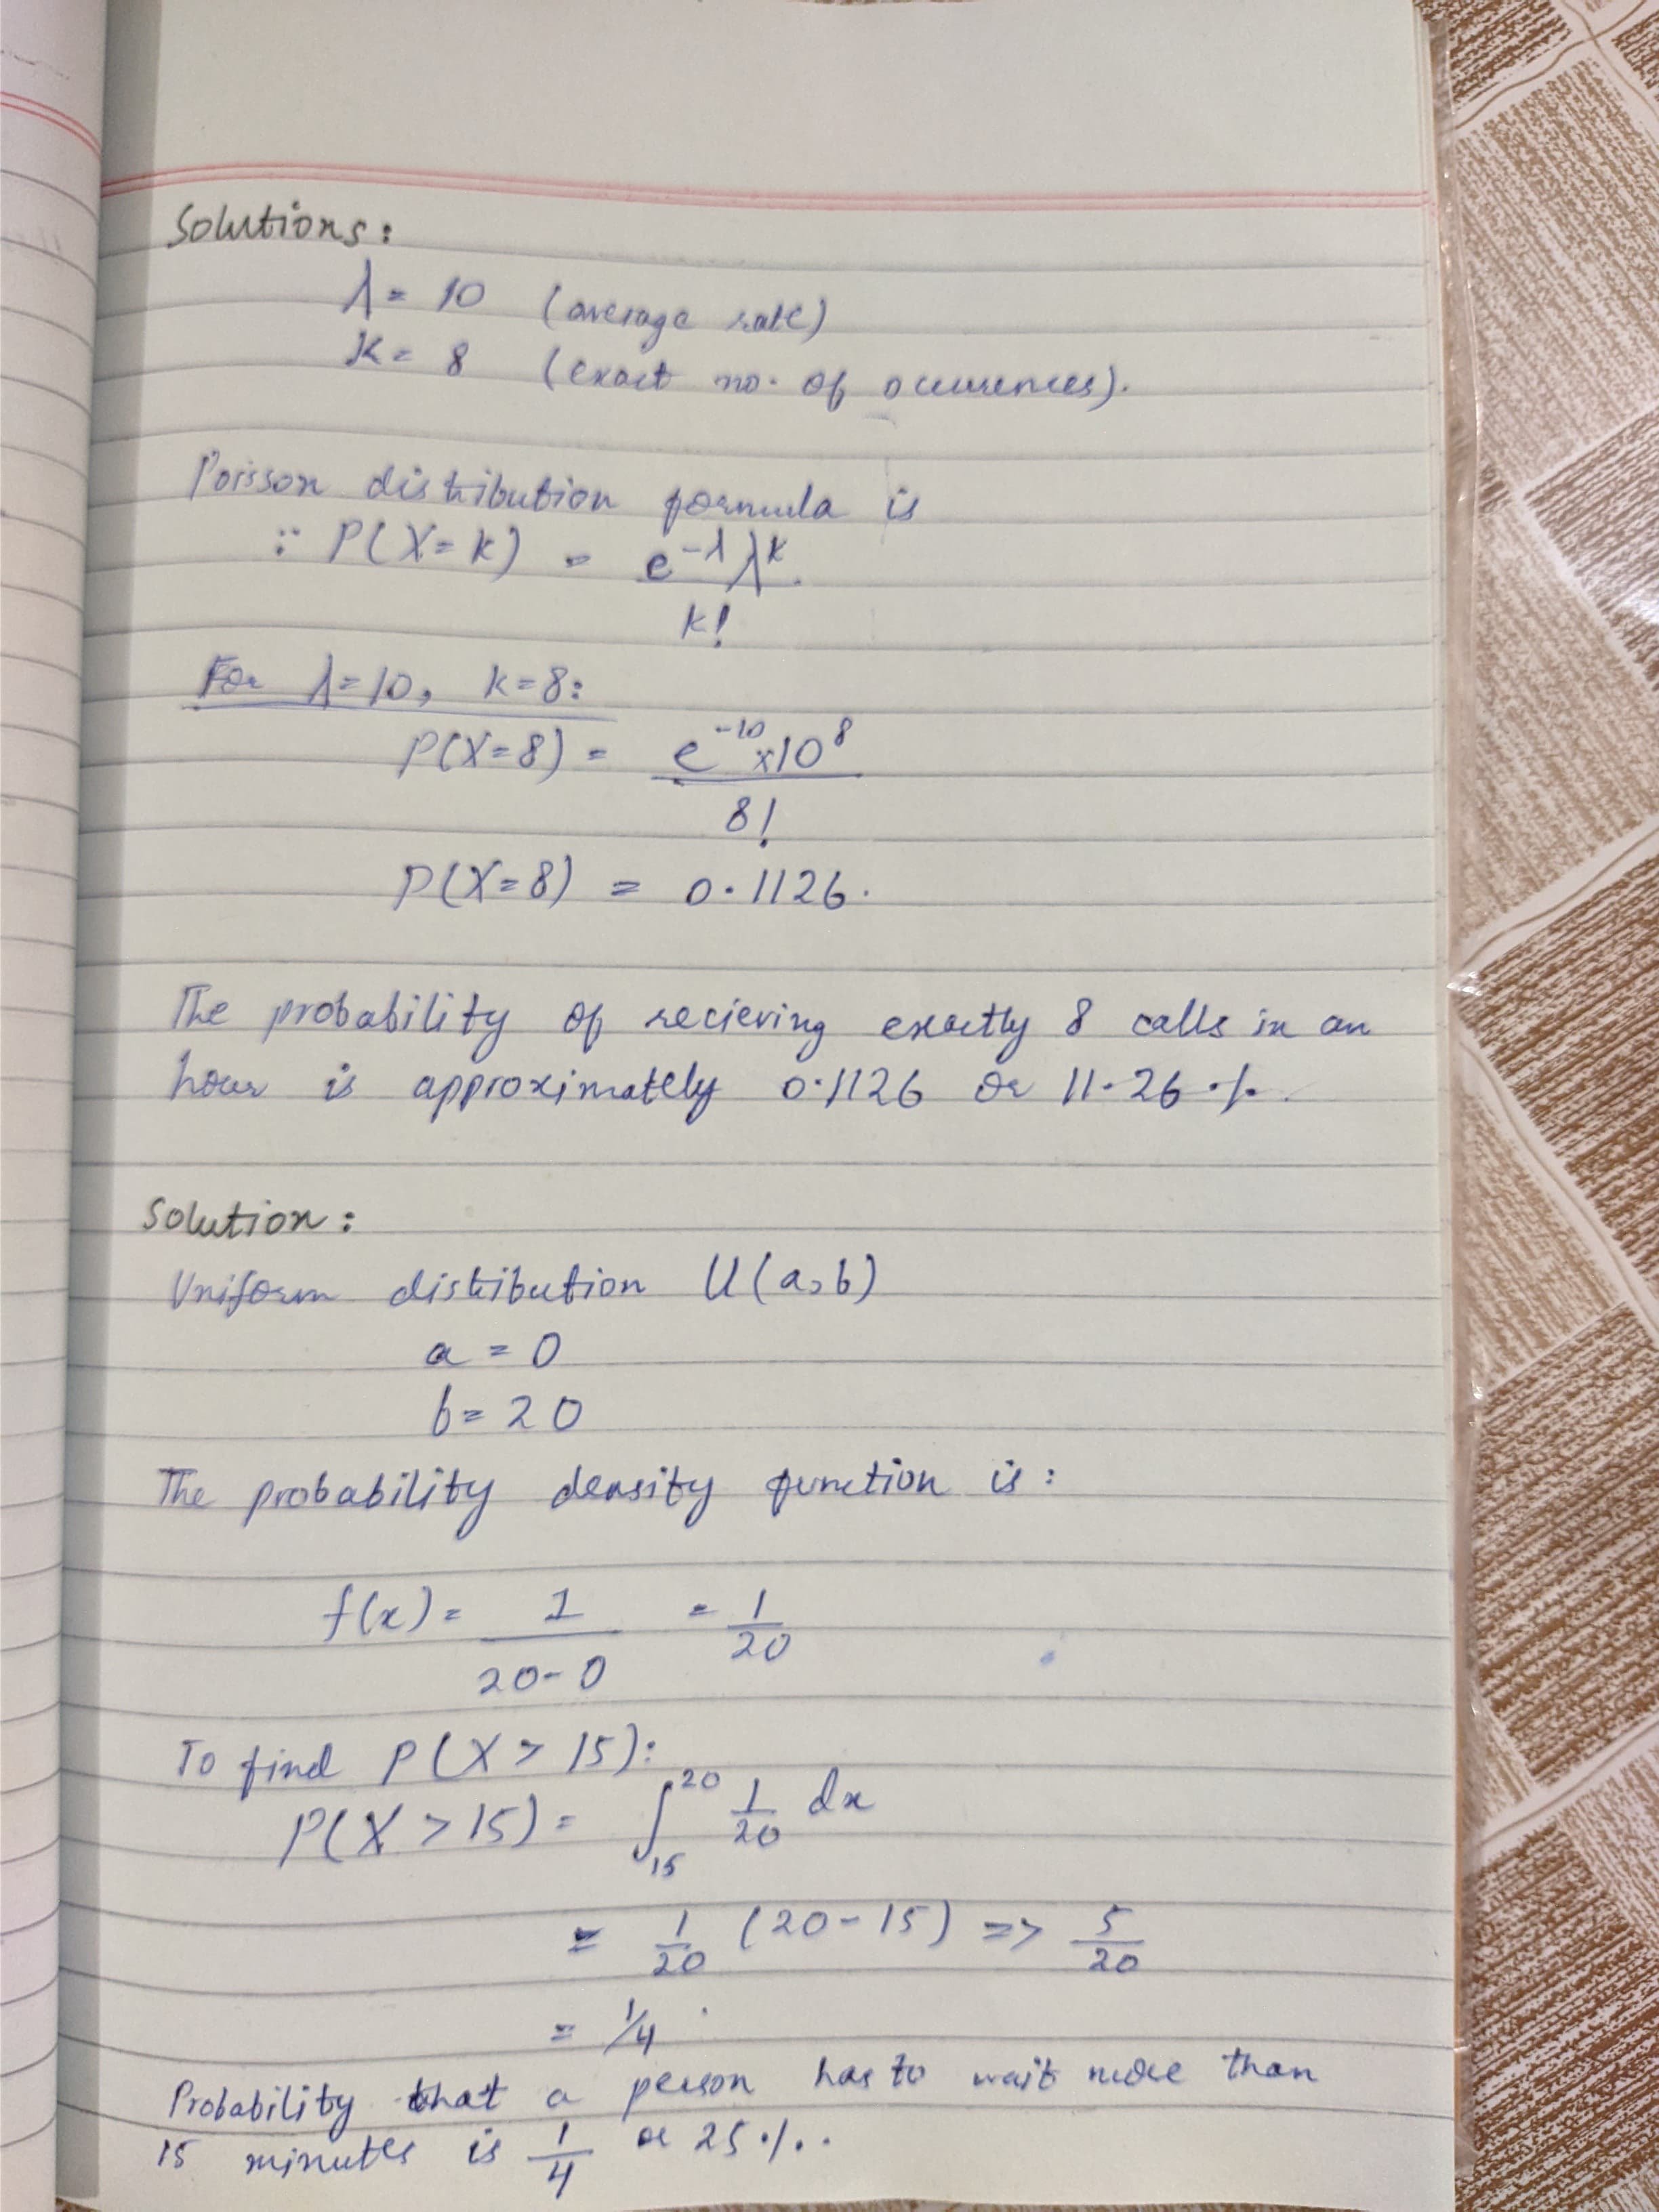 Solutions:
λ = 10 (average rate)
K = 8 (exact no. of ocurrences).
Poisson distribution formula is
∵ P(X=k) = e^-λ λ^k / k!
For λ=10, k=8:
P(X=8) = e^-10 × 10^8 / 8!
P(X=8) = 0.1126.
The probability of recieving exactly 8 calls in an
hour is approximately 0.1126 or 11.26 %.
Solution:
Uniform distribution U(a,b)
a = 0
b = 20
The probability density function is:
f(x) = 1 / 20-0 = 1/20
To find P(X > 15):
P(X > 15) = ∫_15^20 1/20 dx
= 1/20 (20-15) => 5/20
= 1/4
Probability that a person has to wait more than
15 minutes is 1/4 or 25 %.